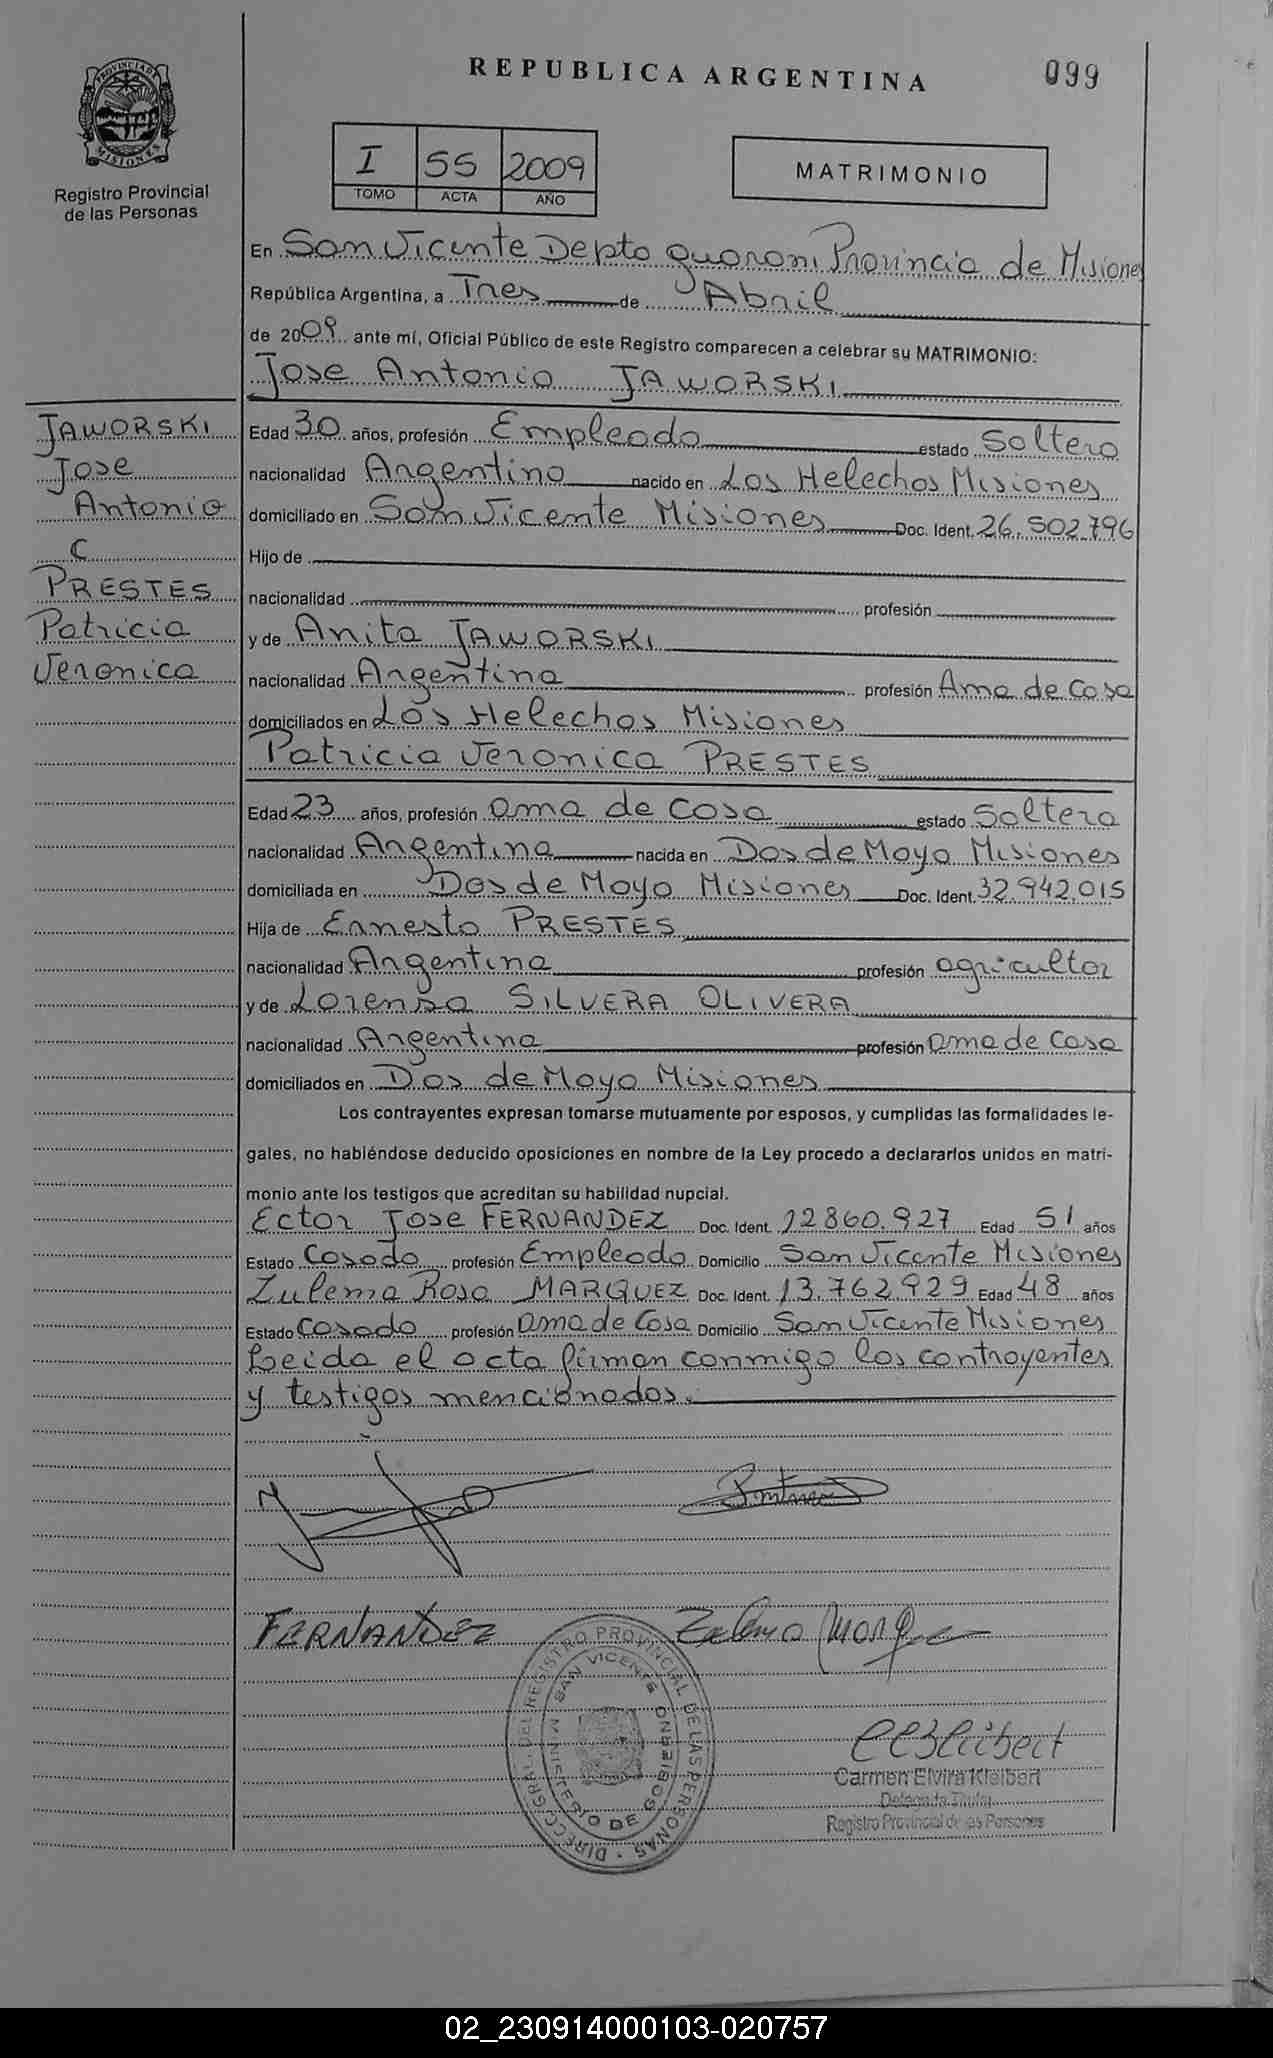 REPUBLICA ARGENTINA
099
PROVINCIA DE MISIONES
Registro Provincial
de las Personas
I 55 2009
TOMO ACTA AÑO
MATRIMONIO
En San Vicente Depto guarani Provincia de Misiones
República Argentina, a Tres de Abril
de 2009 ante mí, Oficial Público de este Registro comparecen a celebrar su MATRIMONIO:
Jose Antonio JAWORSKI
JAWORSKI
Jose
Antonio
C
PRESTES
Patricia
Veronica
Edad 30 años, profesión Empleado estado Soltero
nacionalidad Argentino nacido en Los Helechos Misiones
domiciliado en San Vicente Misiones Doc. Ident. 26.502.796
Hijo de
nacionalidad profesión
y de Anita JAWORSKI
nacionalidad Argentina profesión Ama de Casa
domiciliados en Los Helechos Misiones
Patricia Veronica PRESTES
Edad 23 años, profesión ama de casa estado Soltera
nacionalidad Argentina nacida en Dos de Mayo Misiones
domiciliada en Dos de Mayo Misiones Doc. Ident. 32.942.015
Hija de Ernesto PRESTES
nacionalidad Argentina profesión agricultor
y de Lorensa SILVERA OLIVERA
nacionalidad Argentina profesión ama de casa
domiciliados en Dos de Mayo Misiones
Los contrayentes expresan tomarse mutuamente por esposos, y cumplidas las formalidades le-
gales, no habiéndose deducido oposiciones en nombre de la Ley procedo a declararlos unidos en matri-
monio ante los testigos que acreditan su habilidad nupcial.
Ector Jose FERNANDEZ Doc. Ident. 12860.927 Edad 51 años
Estado Casado profesión Empleado Domicilio San Vicente Misiones
Zulema Rosa MARQUEZ Doc. Ident. 13.762.929 Edad 48 años
Estado Casado profesión ama de Casa Domicilio San Vicente Misiones
Leida el acta firman conmigo los contrayentes
y testigos mencionados.
FERNANDEZ
DIRECC. GRAL. DEL REGISTRO PROVINCIAL DE LAS PERSONAS
SAN VICENTE
MINISTERIO DE GOBIERNO
Carmen Elvira Kleibert
Delegada Titular
Registro Provincial de las Personas
02_230914000103-020757